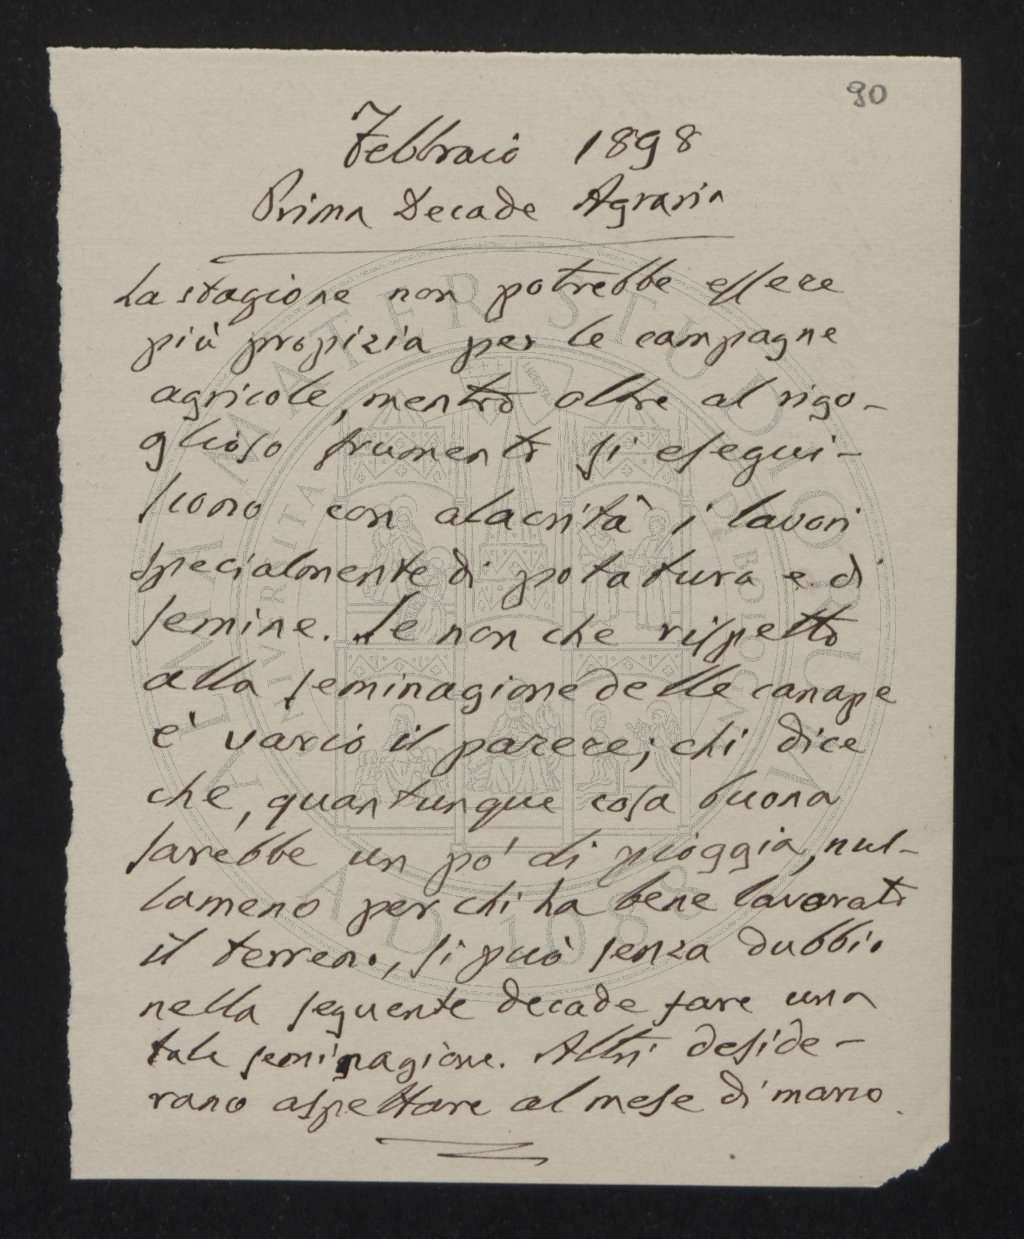 90
Febbraio 1898
Prima Decade Agraria
La stagione non potrebbe essere
più propizia per le campagne
agricole, mentre oltre al rigo-
glioso frumento si esegui-
scono con alacrità i lavori
specialmente di potatura e di
semine. Se non che rispetto
alla seminagione delle canape
è vario il parere; chi dice
che, quantunque cosa buona
sarebbe un po' di pioggia, nul-
lameno per chi ha bene lavorato
il terreno, si può senza dubbio
nella seguente decade fare una
tale seminagione. Altri deside-
rano aspettare al mese di marzo.
ALMA MATER STUDIORUM
A.D. 1088